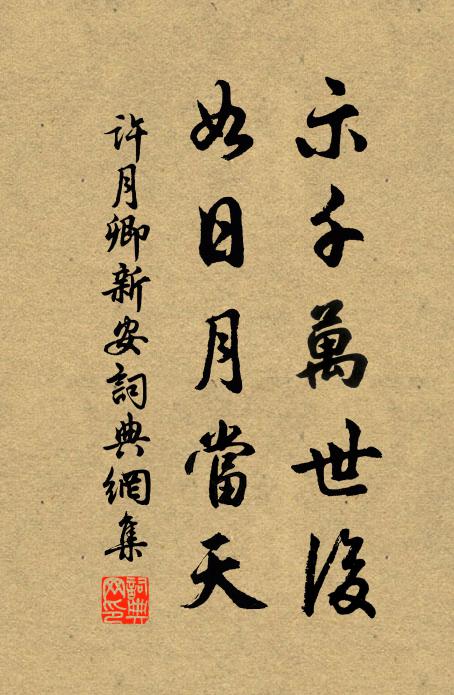 示千萬世後
如日月當天
許月卿新安詞典網集
詞典網印